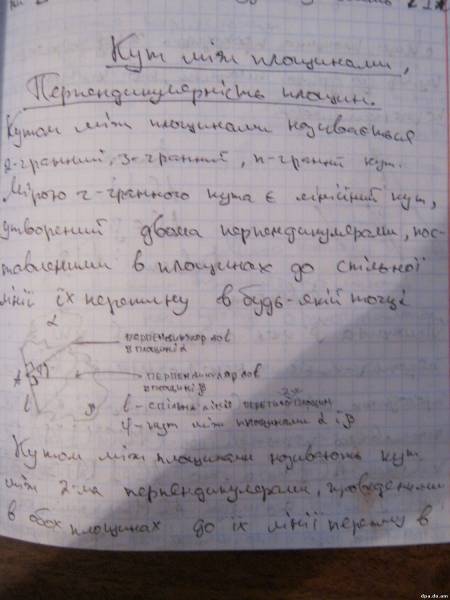 Кут між площинами,
Перпендикулярність площин.
Кутом між площинами називається
2-гранний, 3-гранний, n-гранний кут.
Мірою 2-гранного кута є лінійний кут,
утворений двома перпендикулярами, пос-
тавленими в площинах до спільної
лінії їх перетину в будь-якій точці
α
перпендикуляр до b
в площині α
φ
A
перпендикуляр до b
в площині β
b
β
b - спільна лінія перетину 2-х площин
φ - кут між площинами α і β
Кутом між площинами називають кут
між 2-ма перпендикулярами, проведеними
в обох площинах до їх лінії перетину в
dpa.at.ua